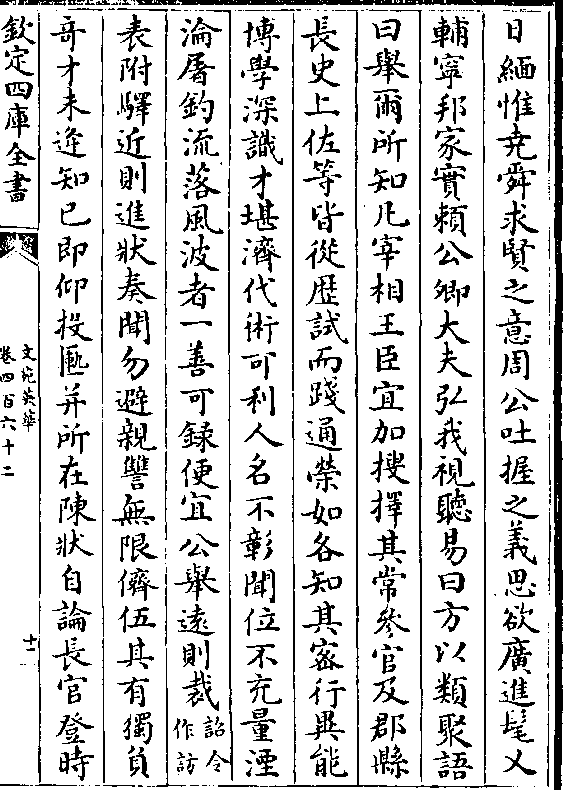 日緬惟堯舜求賢之意周公吐握之義思欲廣進髦乂
輔寧邦家實頼公卿大夫弘我視聽易曰方以類聚語
曰舉爾所知凡宰相王臣宜加搜擇其常叅官及郡縣
長史上佐等皆從歴試而踐通榮如各知其宻行異能
博學深識才堪濟代術可利人名不彰聞位不充量湮
淪屠釣流落風波者一善可録便宜公舉遠則裁詔令作訪
表附驛近則進狀奏聞勿避親讐無限儕伍其有獨負
竒才未逢知已即仰投匭并所在陳狀自論長官登時
欽定四庫全書
文苑英華
卷四百六十二
十二